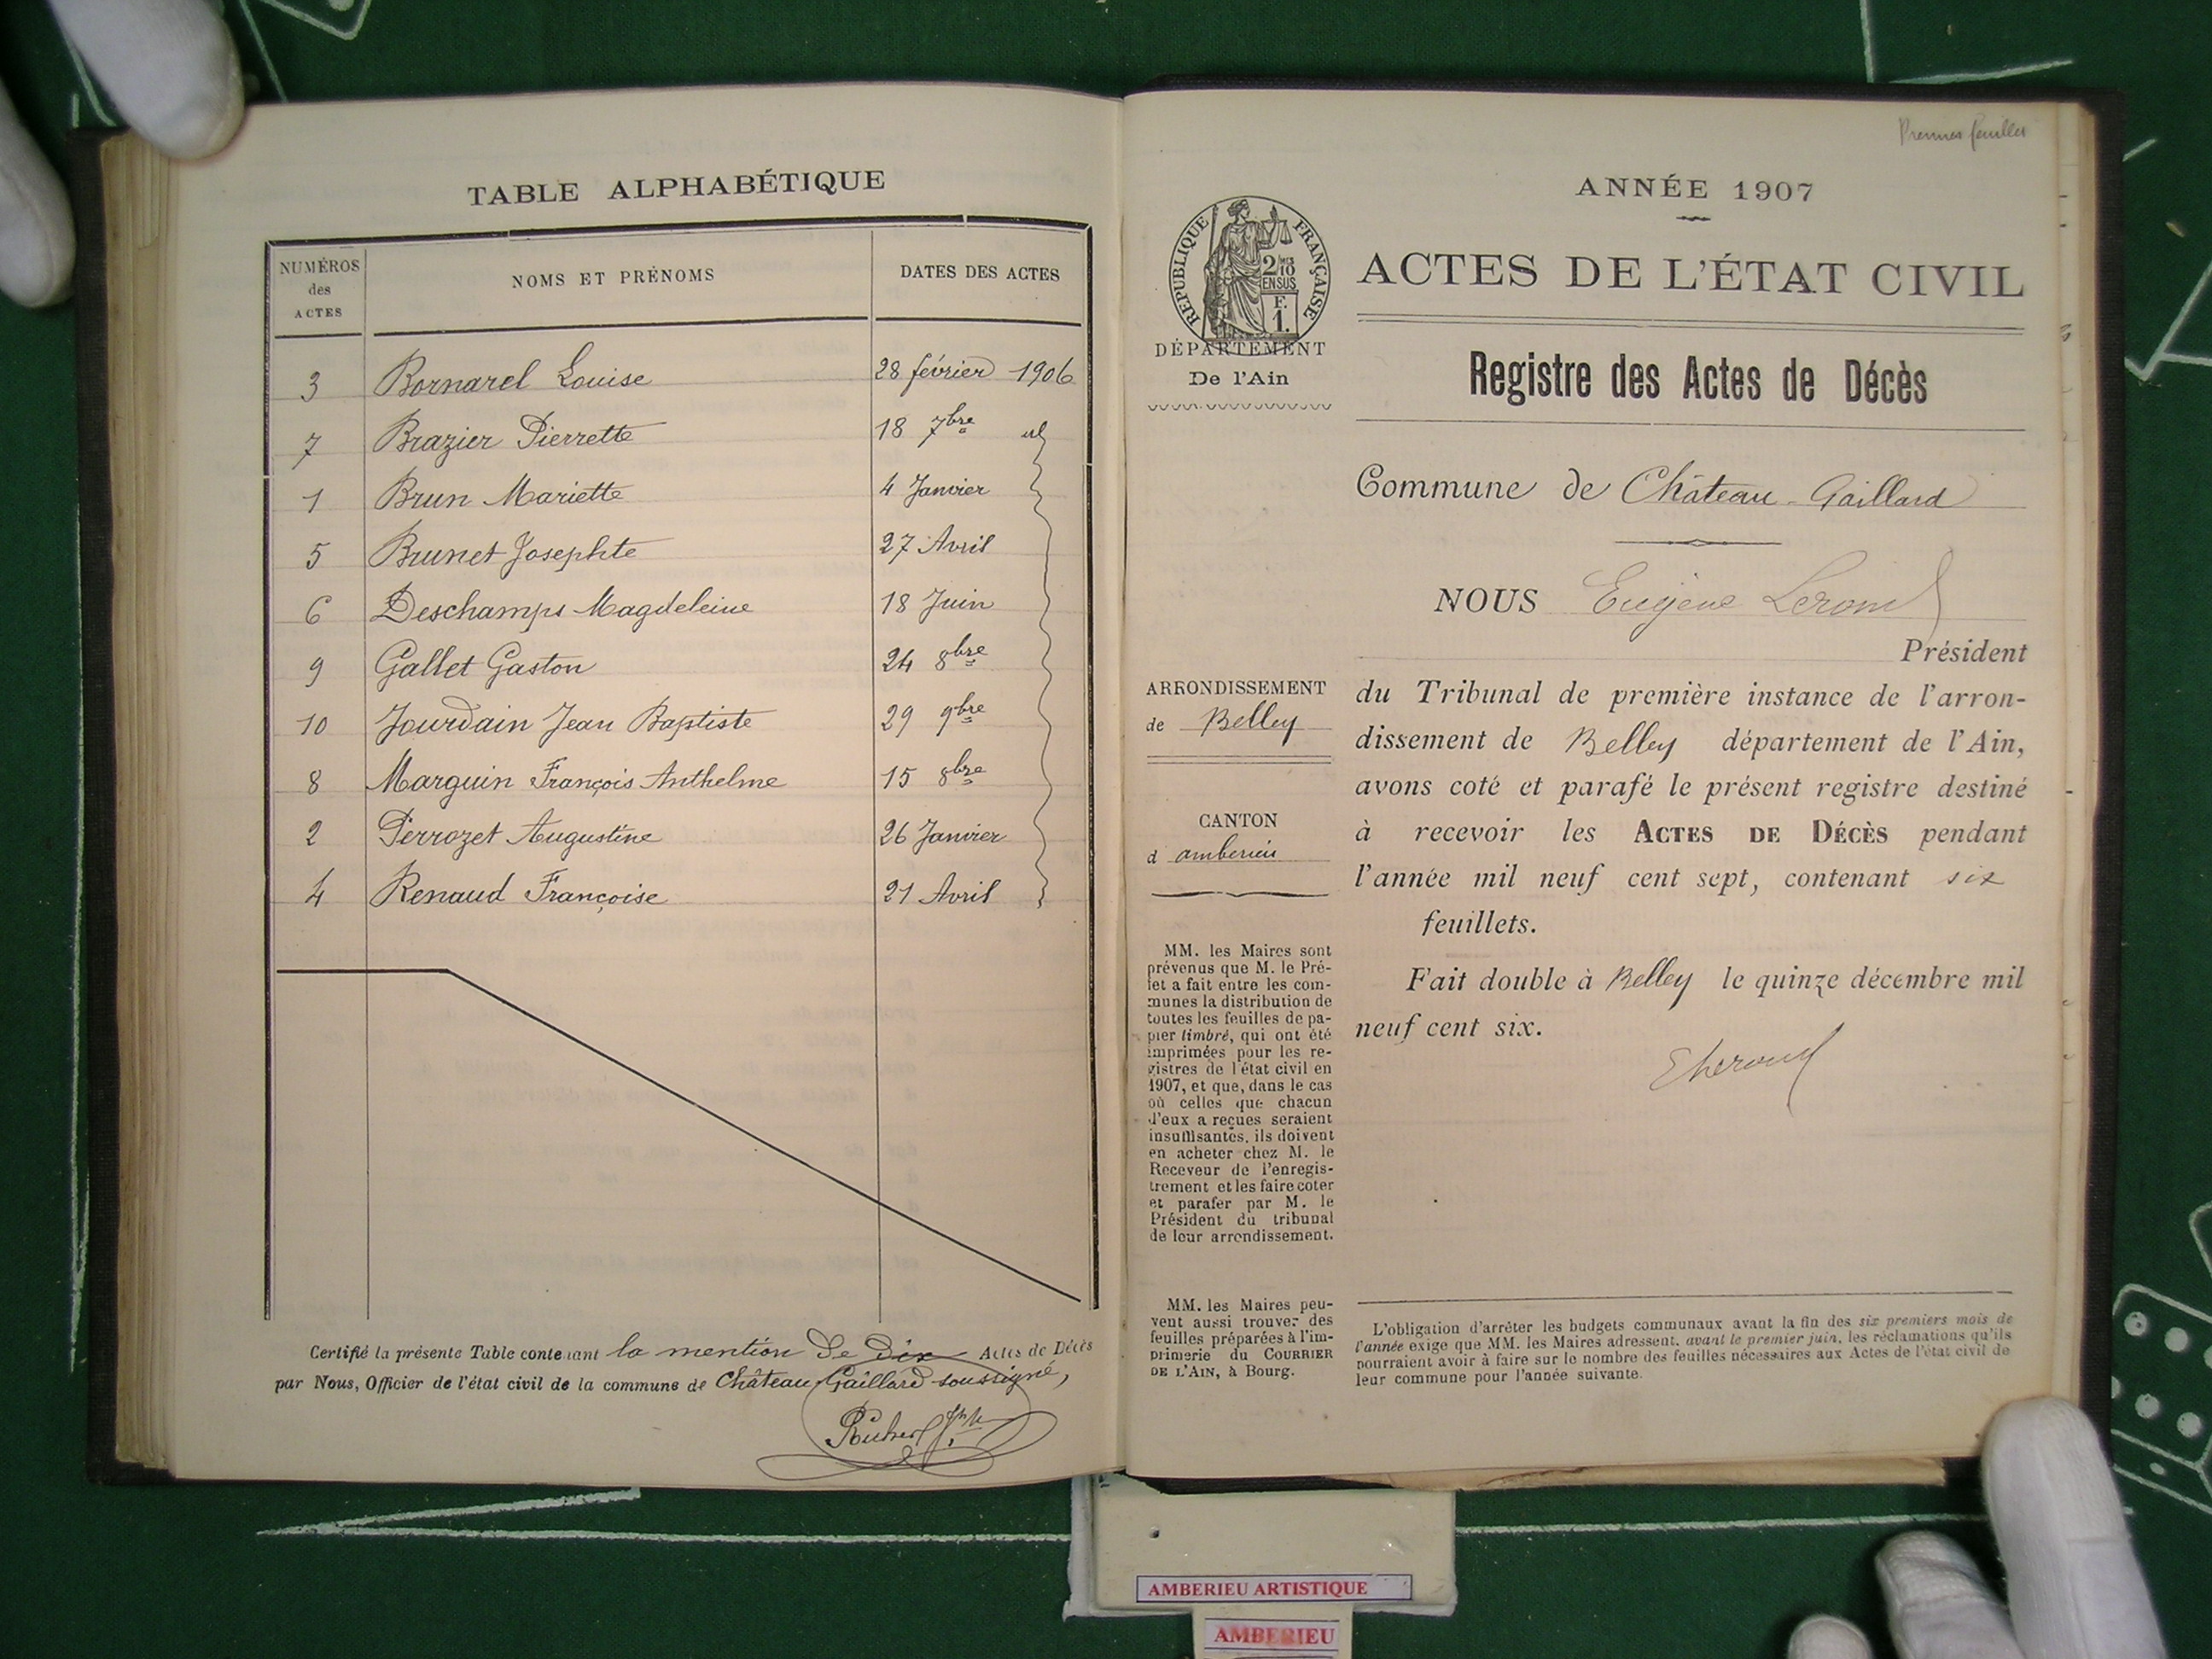 TABLE ALPHABÉTIQUE
NUMÉROS
des
ACTES
NOMS ET PRÉNOMS
DATES DES ACTES
3 Bornarel Louise 28 février 1906
7 Brazier Pierrette 18 7bre
1 Brun Mariette 4 Janvier
5 Brunet Josephte 27 Avril
6 Deschamps Magdeleine 18 Juin
9 Gallet Gaston 24 8bre
10 Jourdain Jean Baptiste 29 9bre
8 Marguin François Anthelme 15 8bre
2 Perrozet Augustine 26 Janvier
4 Renaud Françoise 21 Avril
Certifié la présente Table contenant la mention De dix Actes de Décès
par Nous, Officier de l'état civil de la commune de Château Gaillard soussigné,
ANNÉE 1907
RÉPUBLIQUE FRANÇAISE
2/10
EN SUS
F.
1.
ACTES DE L'ÉTAT CIVIL
DÉPARTEMENT
De l'Ain
Registre des Actes de Décès
Commune de Château-Gaillard
NOUS Eugène
Président
ARRONDISSEMENT
de Belley
du Tribunal de première instance de l'arron-
dissement de Belley département de l'Ain,
avons coté et parafé le présent registre destiné
à recevoir les ACTES DE DÉCÈS pendant
l'année mil neuf cent sept, contenant six
feuillets.
CANTON
d'
Fait double à Belley le quinze décembre mil
neuf cent six.
MM. les Maires sont
prévenus que M. le Pré-
fet a fait entre les com-
munes la distribution de
toutes les feuilles de pa-
pier timbré, qui ont été
imprimées pour les re-
gistres de l'état civil en
1907, et que, dans le cas
où celles que chacun
d'eux a reçues seraient
insuffisantes, ils doivent
en acheter chez M. le
Receveur de l'enregis-
trement et les faire coter
et parafer par M. le
Président du tribunal
de leur arrondissement.
MM. les Maires peu-
vent aussi trouver des
feuilles préparées à l'im-
primerie du COURRIER
DE L'AIN, à Bourg.
L'obligation d'arrêter les budgets communaux avant la fin des six premiers mois de
l'année exige que MM. les Maires adressent, avant le premier juin, les réclamations qu'ils
pourraient avoir à faire sur le nombre des feuilles nécessaires aux Actes de l'état civil de
leur commune pour l'année suivante.
AMBERIEU ARTISTIQUE
AMBERIEU